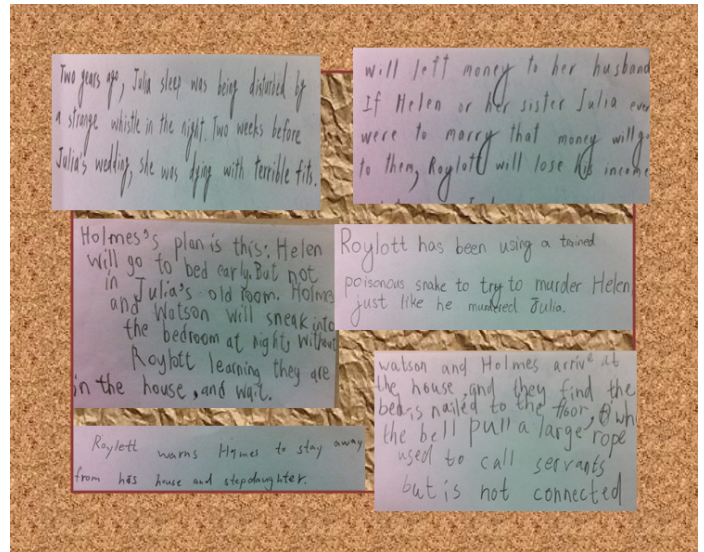 Two years ago, Julia sleep was being disturbed by
a strange whistle in the night. Two weeks before
Julia's wedding, she was dying with terrible fits.
will left money to her husband
If Helen or her sister Julia ever
were to marry that money will go
to them, Roylott will lose his income
Holmes's plan is this: Helen
will go to bed early. But not
in Julia's old room. Holmes
and Watson will sneak into
the bedroom at night, without
Roylott learning they are
in the house, and wait.
Roylott has been using a trained
poisonous snake to try to murder Helen,
just like he murdered Julia.
Roylett warns Hlmes to stay away
from his house and stepdaughter.
watson and Holmes arrive at
the house, and they find the
bed is nailed to the floor,
the bell pull a large rope
used to call servants
but is not connected